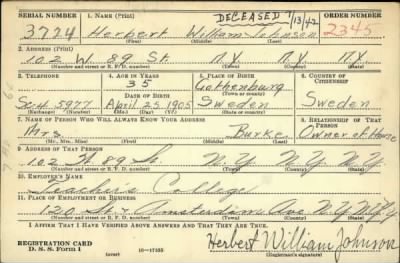 SERIAL NUMBER 1. NAME (Print) DECEASED 7/13/42 ORDER NUMBER
3724 Herbert William Johnson 2345
(First) (Middle) (Last)
2. ADDRESS (Print)
102 W. 89 St. N.Y. N.Y. N.Y.
(Number and street or R. F. D. number) (Town) (County) (State)
3. TELEPHONE 4. AGE IN YEARS 5. PLACE OF BIRTH 6. COUNTRY OF CITIZENSHIP
35 Gothenburg
DATE OF BIRTH (Town or county)
Sc-4 5977 April 25 1905 Sweden Sweden
(Exchange) (Number) (Mo.) (Day) (Yr.) (State or country)
7. NAME OF PERSON WHO WILL ALWAYS KNOW YOUR ADDRESS 8. RELATIONSHIP OF THAT PERSON
Mrs. Burke Owner of House
(Mr., Mrs., Miss) (First) (Middle) (Last)
9. ADDRESS OF THAT PERSON
102 W. 89 St. N.Y. N.Y. N.Y.
(Number and street or R. F. D. number) (Town) (County) (State)
10. EMPLOYER'S NAME
Teachers College
11. PLACE OF EMPLOYMENT OR BUSINESS
120 St & Amsterdam Ave N.Y. N.Y. N.Y.
(Number and street or R. F. D. number) (Town) (County) (State)
I AFFIRM THAT I HAVE VERIFIED ABOVE ANSWERS AND THAT THEY ARE TRUE.
REGISTRATION CARD
D. S. S. Form 1 (over) 16—17105 Herbert William Johnson
(Registrant's signature)